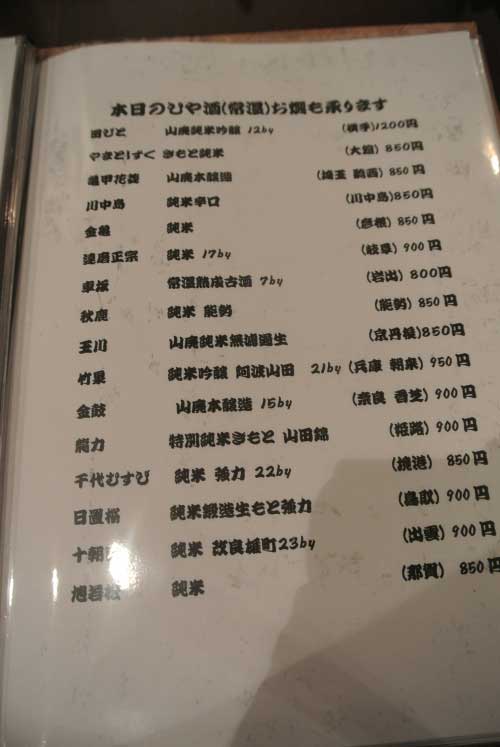 本日のひや酒(常温)お燗も承ります
田びと 山廃純米吟醸 12by (横手)1200円
やまとしずく きもと純米 (大館) 850円
亀甲花菱 山廃本醸造 (埼玉 騎西) 850円
川中島 純米辛口 (川中島)850円
金亀 純米 (彦根) 850円
達磨正宗 純米 17by (岐阜) 900円
車坂 常温熟成古酒 7by (岩出) 800円
秋鹿 純米 能勢 (能勢) 850円
玉川 山廃純米無濾過生 (京丹後)850円
竹泉 純米吟醸 阿波山田 21by (兵庫 朝来) 950円
金鼓 山廃本醸造 15by (奈良 香芝) 900円
能力 特別純米きもと 山田錦 (姫路) 900円
千代むすび 純米 強力 22by (境港) 850円
日置桜 純米鍛造生もと強力 (鳥取) 900円
十旭 純米 改良雄町23by (出雲) 900円
旭若松 純米 (那賀) 850円